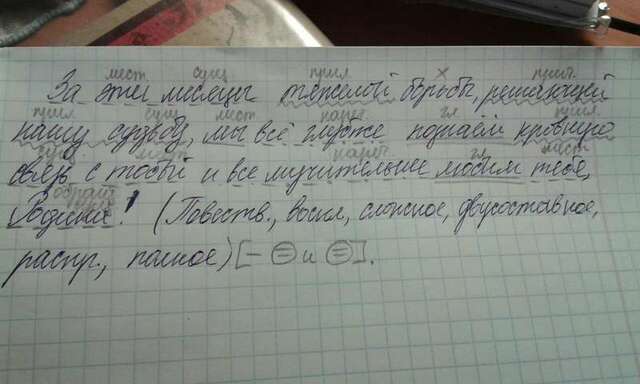 мест. сущ. прил. х прич.
За эти месяцы тяжелой борьбы, решающей
прил. сущ. мест нареч. гл прил.
нашу судьбу, мы всё глубже познаём кровную
сущ. мест нареч гл мест
связь с тобой и все мучительнее любим тебя,
обращ.
Родина! (Повеств., воскл, сложное, двусоставное,
распр., полное) [- = и =].